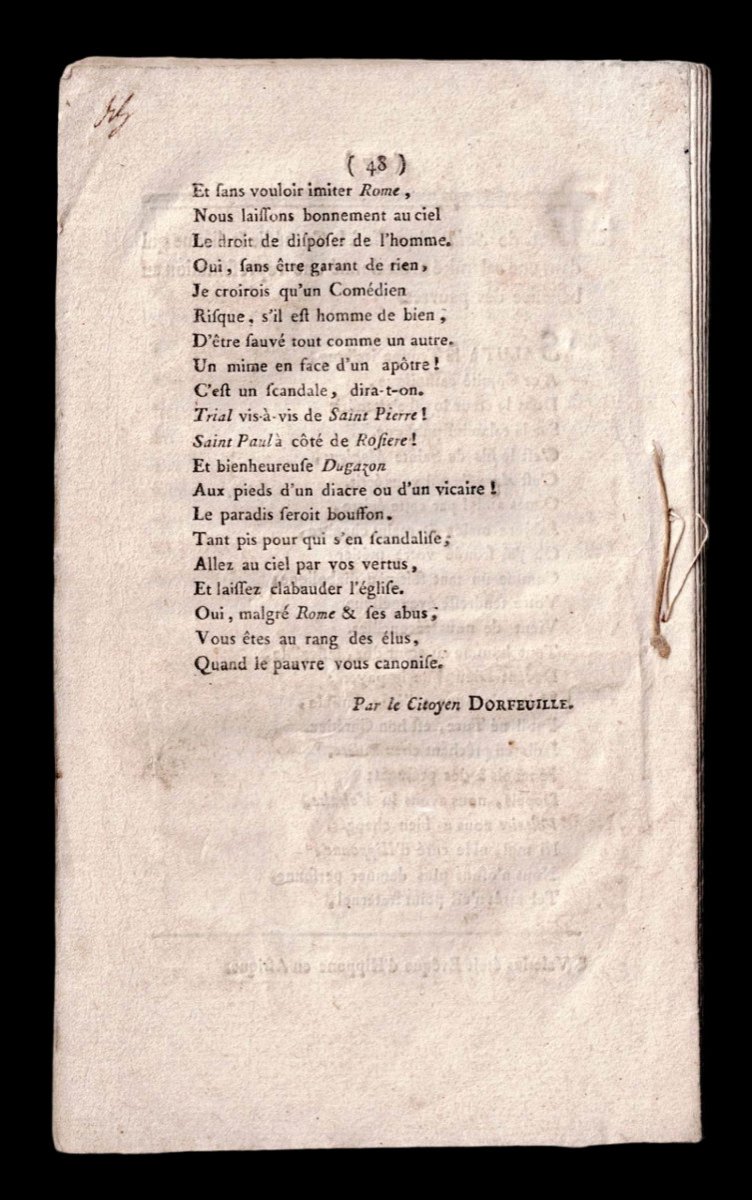 ( 48 )
Et ſans vouloir imiter Rome,
Nous laiſſons bonnement au ciel
Le droit de diſpoſer de l'homme.
Oui, ſans être garant de rien,
Je croirois qu'un Comédien
Riſque, s'il eſt homme de bien,
D'être ſauvé tout comme un autre.
Un mime en face d'un apôtre!
C'eſt un ſcandale, dira-t-on.
Trial vis-à-vis de Saint Pierre!
Saint Paul à côté de Roſiere!
Et bienheureuſe Dugazon
Aux pieds d'un diacre ou d'un vicaire!
Le paradis ſeroit bouffon.
Tant pis pour qui s'en ſcandaliſe;
Allez au ciel par vos vertus,
Et laiſſez clabauder l'égliſe.
Oui, malgré Rome & ſes abus,
Vous êtes au rang des élus,
Quand le pauvre vous canoniſe.
Par le Citoyen DORFEUILLE.